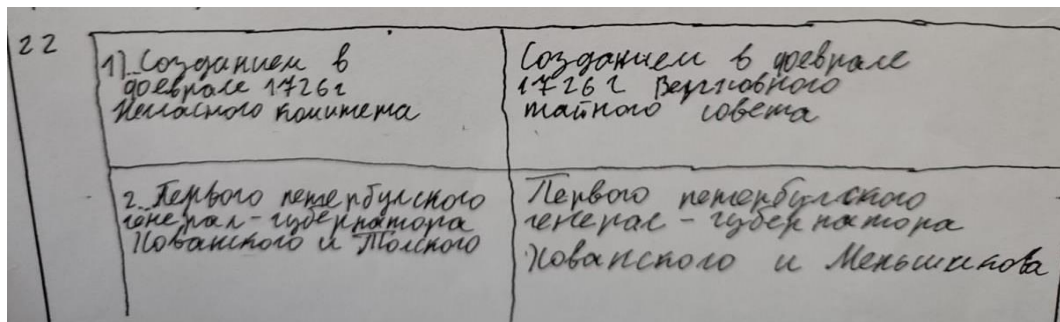 22
1) Созданием в
феврале 1726 г
Негласного комитета
Созданием в феврале
1726 г Верховного
тайного совета
2. Первого петербулского
генерал-губернатора
Хованского и Толского
Первого петербулского
генерал-губернатора
Хованского и Меньшикова